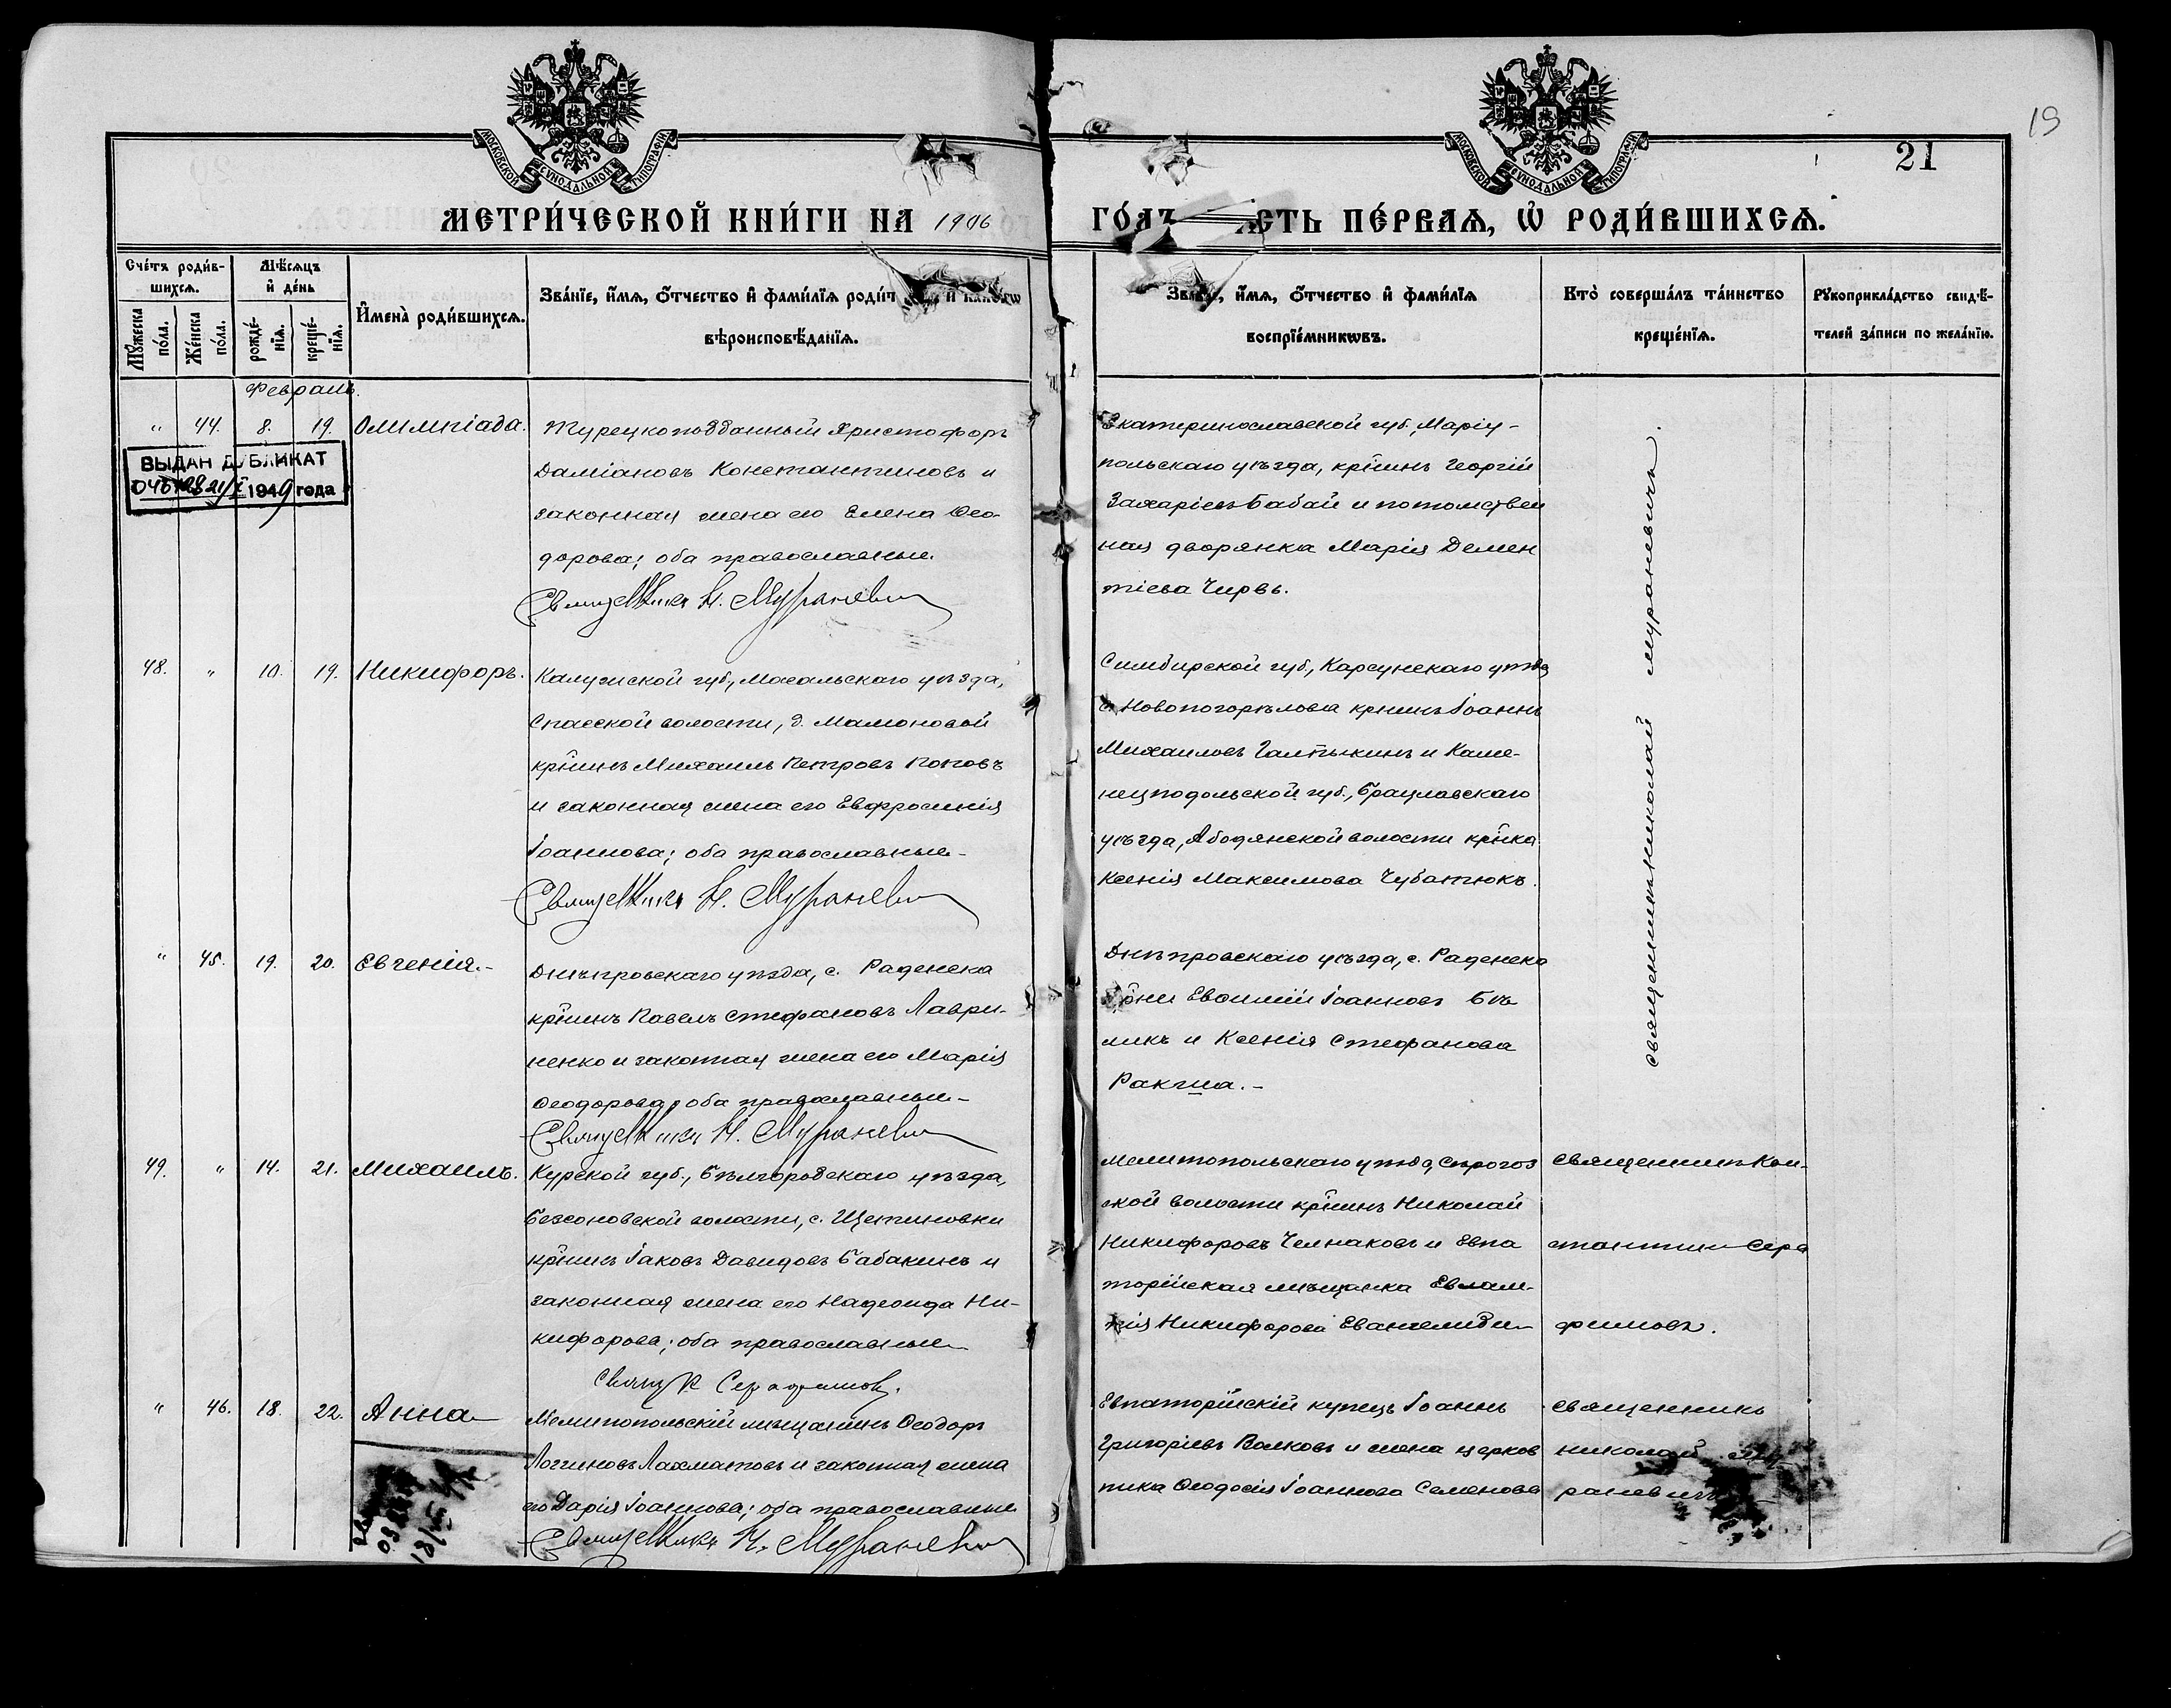 19
21
МОСКОВСКОЙ СѴНОДАЛЬНОЙ ТИПОГРАФІИ
МОСКОВСКОЙ СѴНОДАЛЬНОЙ ТИПОГРАФІИ
МЕТРИ́ЧЕСКОЙ КНИ́ГИ НА 1906
ГО́ДЪ ЧАСТЬ ПЕ́РВАѦ, Ѿ РОДИ́ВШИХСѦ.
Сче́тъ роди́в-
шихсѧ.
Мꙋ́жеска по́ла.
Же́нска по́ла.
Мѣ́сѧцъ
и҆ де́нь
рожде́-
нїѧ.
креще́-
нїѧ.
И҆мена̀ роди́вшихсѧ.
Зва́нїе, и҆́мѧ, ѻ҆́тчество и҆ фами́лїѧ роди́т и҆ како́гѡ
вѣроисповѣ́данїѧ.
Зва́нїе, и҆́мѧ, ѻ҆́тчество и҆ фами́лїѧ
воспрїе́мникѡвъ.
Кто̀ соверша́лъ та́инство
креще́нїѧ.
Рꙋкоприкла́дство свидѣ́-
телей за́писи по жела́нїю.
Февраль.
" 44. 8. 19. Олимпіада.
Турецкоподданный Христофоръ
Даміановъ Константиновъ и
законная жена его Елена Ѳео-
дорова; оба православные.
Священникъ Н. Мураневич
Екатеринославской губ., Маріу-
польскаго уѣзда, кр̃нинъ Георгій
Захаріевъ Бабай и потомствен
ная дворянка Марія Демен
тіева Чирвъ.
ВЫДАН ДУБЛИКАТ
1949 года
48. " 10. 19. Никифоръ.
Калужской губ., Масальскаго уѣзда,
Спасской волости, д. Мамоновой
кр̃нинъ Михаилъ Петровъ Поповъ
и законная жена его Евфросинія
Іоаннова; оба православные-
Священникъ Н. Мураневич
Симбирской губ., Карсунскаго уѣзда
с. Новопогорѣлова кр̃нинъ Іоаннъ
Михаиловъ Галтыкинъ и Каме-
нецподольской губ., Брацлавскаго
уѣзда, Ободянской волости кр̃нка
Ксенія Максимова Чубатюкъ.
священникъ николай мураневичъ.
" 45. 19. 20. Евгенія.-
Днѣпровскаго уѣзда, с. Раденска
кр̃нинъ Павелъ Стефановъ Лаври-
ненко и законная жена его Марія
Ѳеодорова; оба православные-
Священникъ Н. Мураневич
Днѣпровскаго уѣзда, с. Раденска
кр̃не Евѳимій Іоанновъ Бѣ
ликъ и Ксенія Стефанова
Ракша.-
49. " 14. 21. Михаилъ.
Курской губ., Бѣлгородскаго уѣзда,
Бессоновской волости, с. Щетиновки
кр̃нинъ Іаковъ Давидовъ Бабакинъ и
законная жена его Надежда Ни-
кифорова; оба православные-
Священ К Серафимовъ.
Мелитопольскаго уѣзда Сѣрогоз
ской волости кр̃нинъ Николай
Никифоровъ Челнаковъ и Евпа
торійская мѣщанка Евлам-
пія Никифорова Евангелиди-
священникъ Кон-
стантин Сера
фимовъ.
" 46. 18. 22. Анна-
Мелитопольскій мѣщанинъ Ѳеодоръ
Логгиновъ Лахматовъ и законная жена
его Дарія Іоаннова; оба православные
Священникъ Н. Мураневич
Евпаторійскій купецъ Іоаннъ
Григоріевъ Волковъ и жена церков
ника Ѳеодосія Іоаннова Семенова
священникъ
николай му
раневичъ